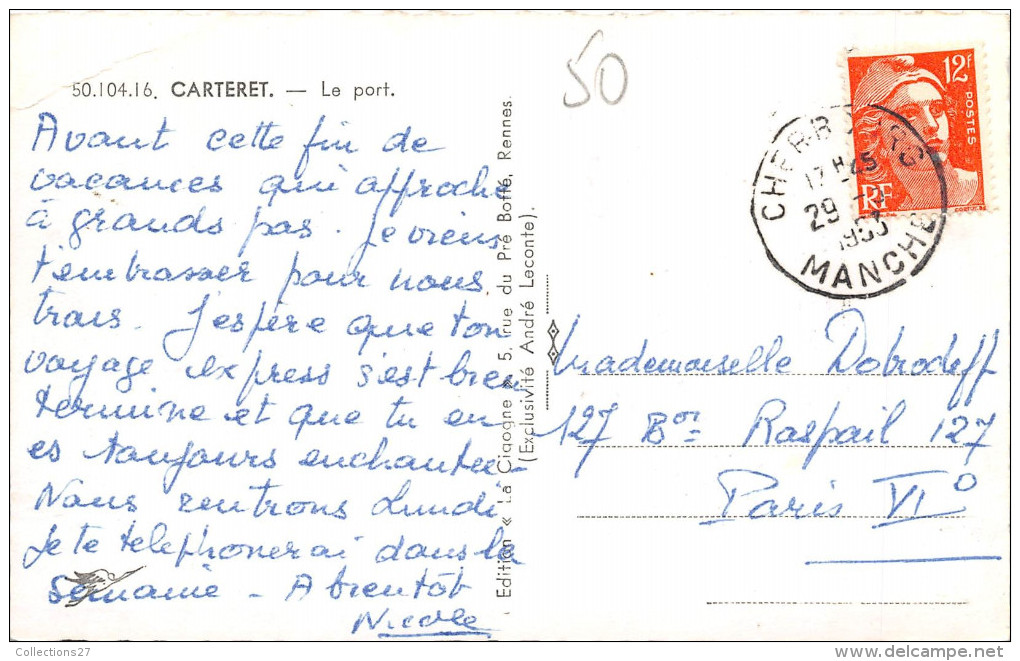 50.104.16. CARTERET. — Le port.
Avant cette fin de
vacances qui approche
à grands pas. Je viens
t'embrasser pour nous
trois. J'espère que ton
voyage express s'est bien
terminé et que tu en
es toujours enchantée.
Nous rentrons Lundi
Je te telephonerai dans la
semaine - A bientôt
Nicole
Edition « La Cigogne » 5, rue du Pré Botté, Rennes.
(Exclusivité André Leconte).
50
12F
POSTES
RF
CHERBOURG
17H45
29
1953
MANCHE
Mademoiselle Dobrodeff
127 Bon Raspail 127
Paris VI°
Collections27
www.delcampe.net